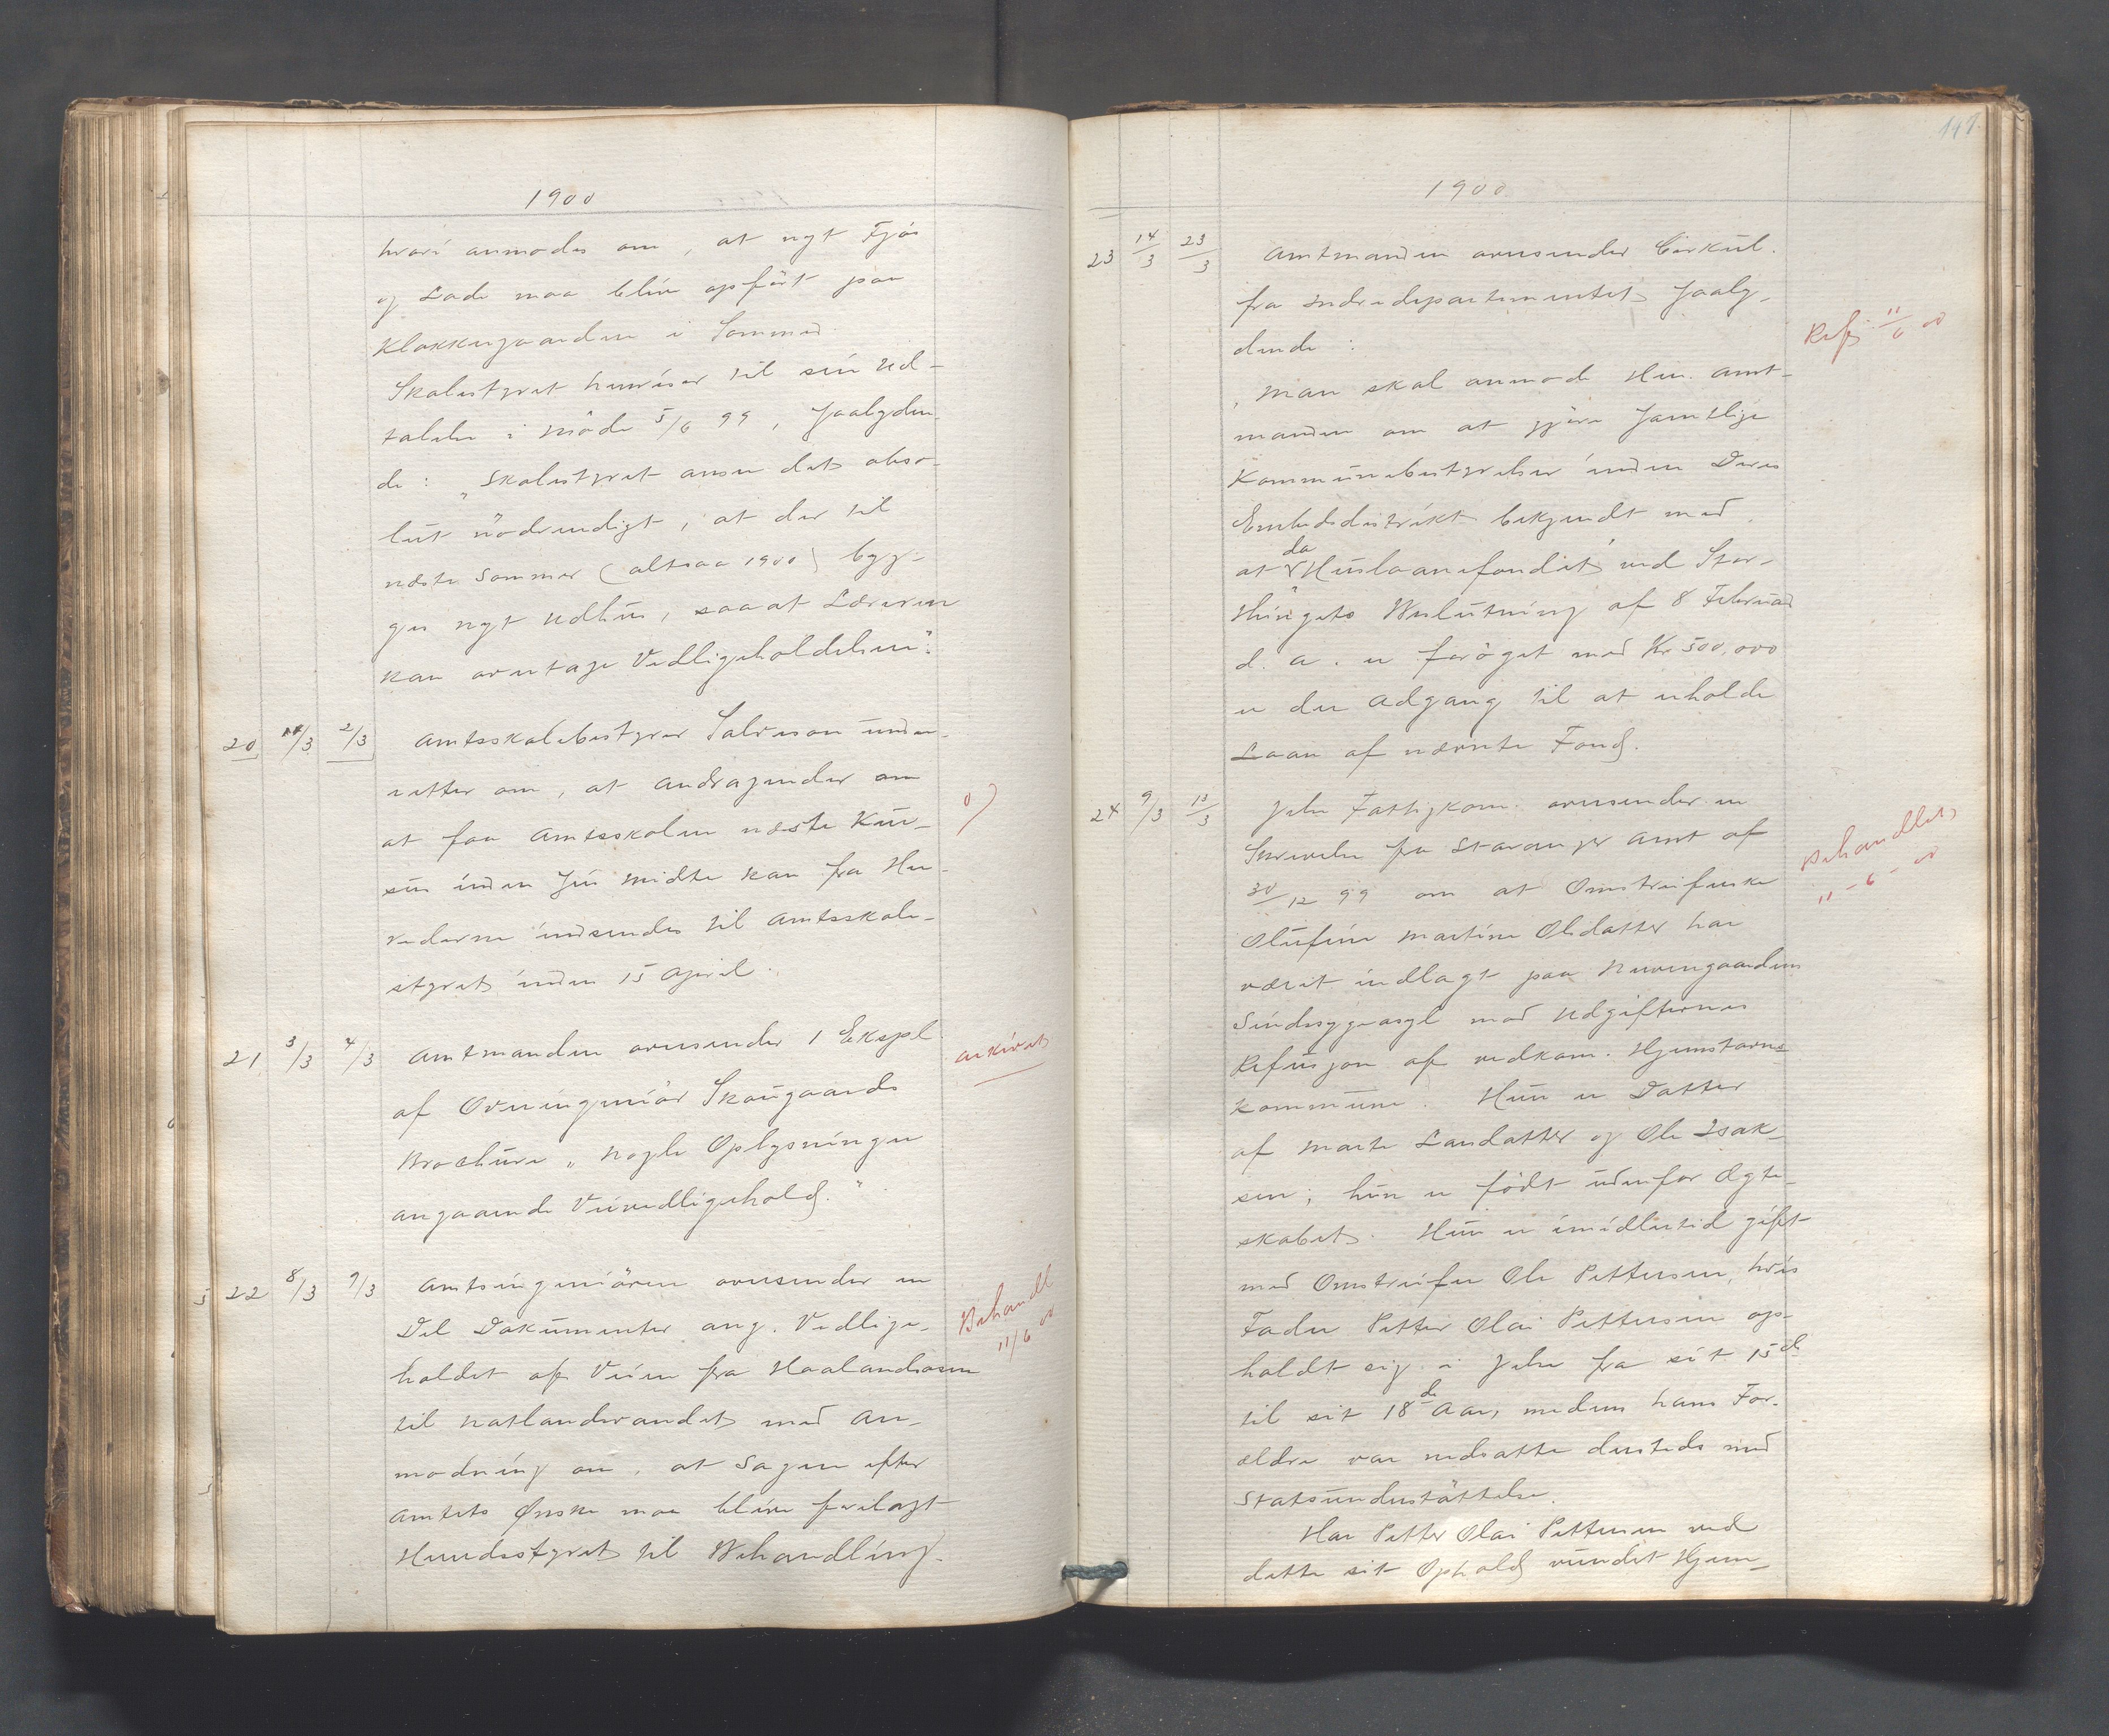 1900
hvori anmodes om, at nyt Fjøs
og Lade maa blive opført paa
Klokkergaarden i Sommer.
Skolestyret henviser til sin Ud-
talelse i Møde 5/6 99, saalyden-
de: "Skolestyret anser det abso-
lut nødvendigt, at der til
næste Sommer (altsaa 1900) byg-
ges nyt Udhus, saa at Læreren
kan overtage Vedligeholdelsen".
20 1/3 2/3 Amtsskolebestyrer Salveson under-
retter om, at Andragender om
at faa Amtsskolen næste Kur-
sus inden Juni Midte kan fra He-
rederne indsendes til Amtsskole-
styret inden 15 April.
21 3/3 4/3 Amtmanden oversender 1 Ekspl.
af Overingeniør Skougaards
Brochure "Nogle Oplysninger
angaaende Veivedligehold."
arkivet
5 22 8/3 9/3 Amtsingeniøren oversender en
Del Dokumenter ang. Vedlige-
holdet af Veien fra Haalandsosen
til Natlandsvandet med An-
modning om, at Sagen efter
Amtets Ønske maa blive forelagt
Herredsstyret til Behandling.
Behandl
11/6 00
147
1900
23 14/3 23/3 Amtmanden oversender Cirkul.
fra Indredepartementet saaly-
dende:
"Man skal anmode Hr. Amt-
manden om at gjøre samtlige
Kommunebestyrelser inden Deres
Embedsdistrikt bekjendt med,
at da Huslaanefondet ved Stor-
thingets Beslutning af 8 Februar
d. A. er forøget med Kr 500,000
er der Adgang til at erholde
Laan af nævnte Fond.
Ref 11/6 00
24 9/3 13/3 Jelse Fattigkom. oversender en
Skrivelse fra Stavanger Amt af
30/12 99 om at Omstreiferske
Olufine Martine Olsdatter har
været indlagt paa Nevengaardens
Sindssygeasyl mod Udgifternes
Refusjon af vedkom. Hjemstavns-
kommune. Hun er Datter
af Marte Larsdatter og Ole Isak-
sen; hun er født udenfor Ægte-
skabet. Hun er imidlertid gift
med Omstreifer Ole Pettersen, hvis
Fader Petter Olai Pettersen op-
holdt sig i Jelse fra sit 15de
til sit 18de Aar, medens hans For-
ældre var nedsatte dersteds med
Statsunderstøttelse.
Har Petter Olai Pettersen ved
dette sit Ophold vundet Hjem-
Behandlet
11-6-00